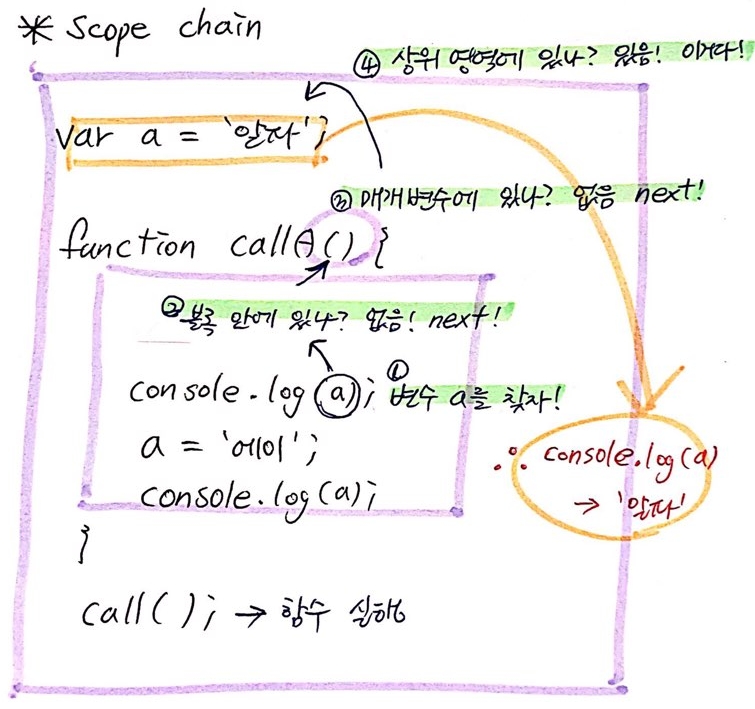 * Scope chain
④ 상위 영역에 있나? 있음! 이거다!
var a = '알파';
③ 매개변수에 있나? 없음 next!
function callA() {
② 블록 안에 있나? 없음! next!
console.log(a); ① 변수 a를 찾자!
a = '에이';
∴ console.log(a)
console.log(a);
→ '알파'
}
call(); → 함수 실행